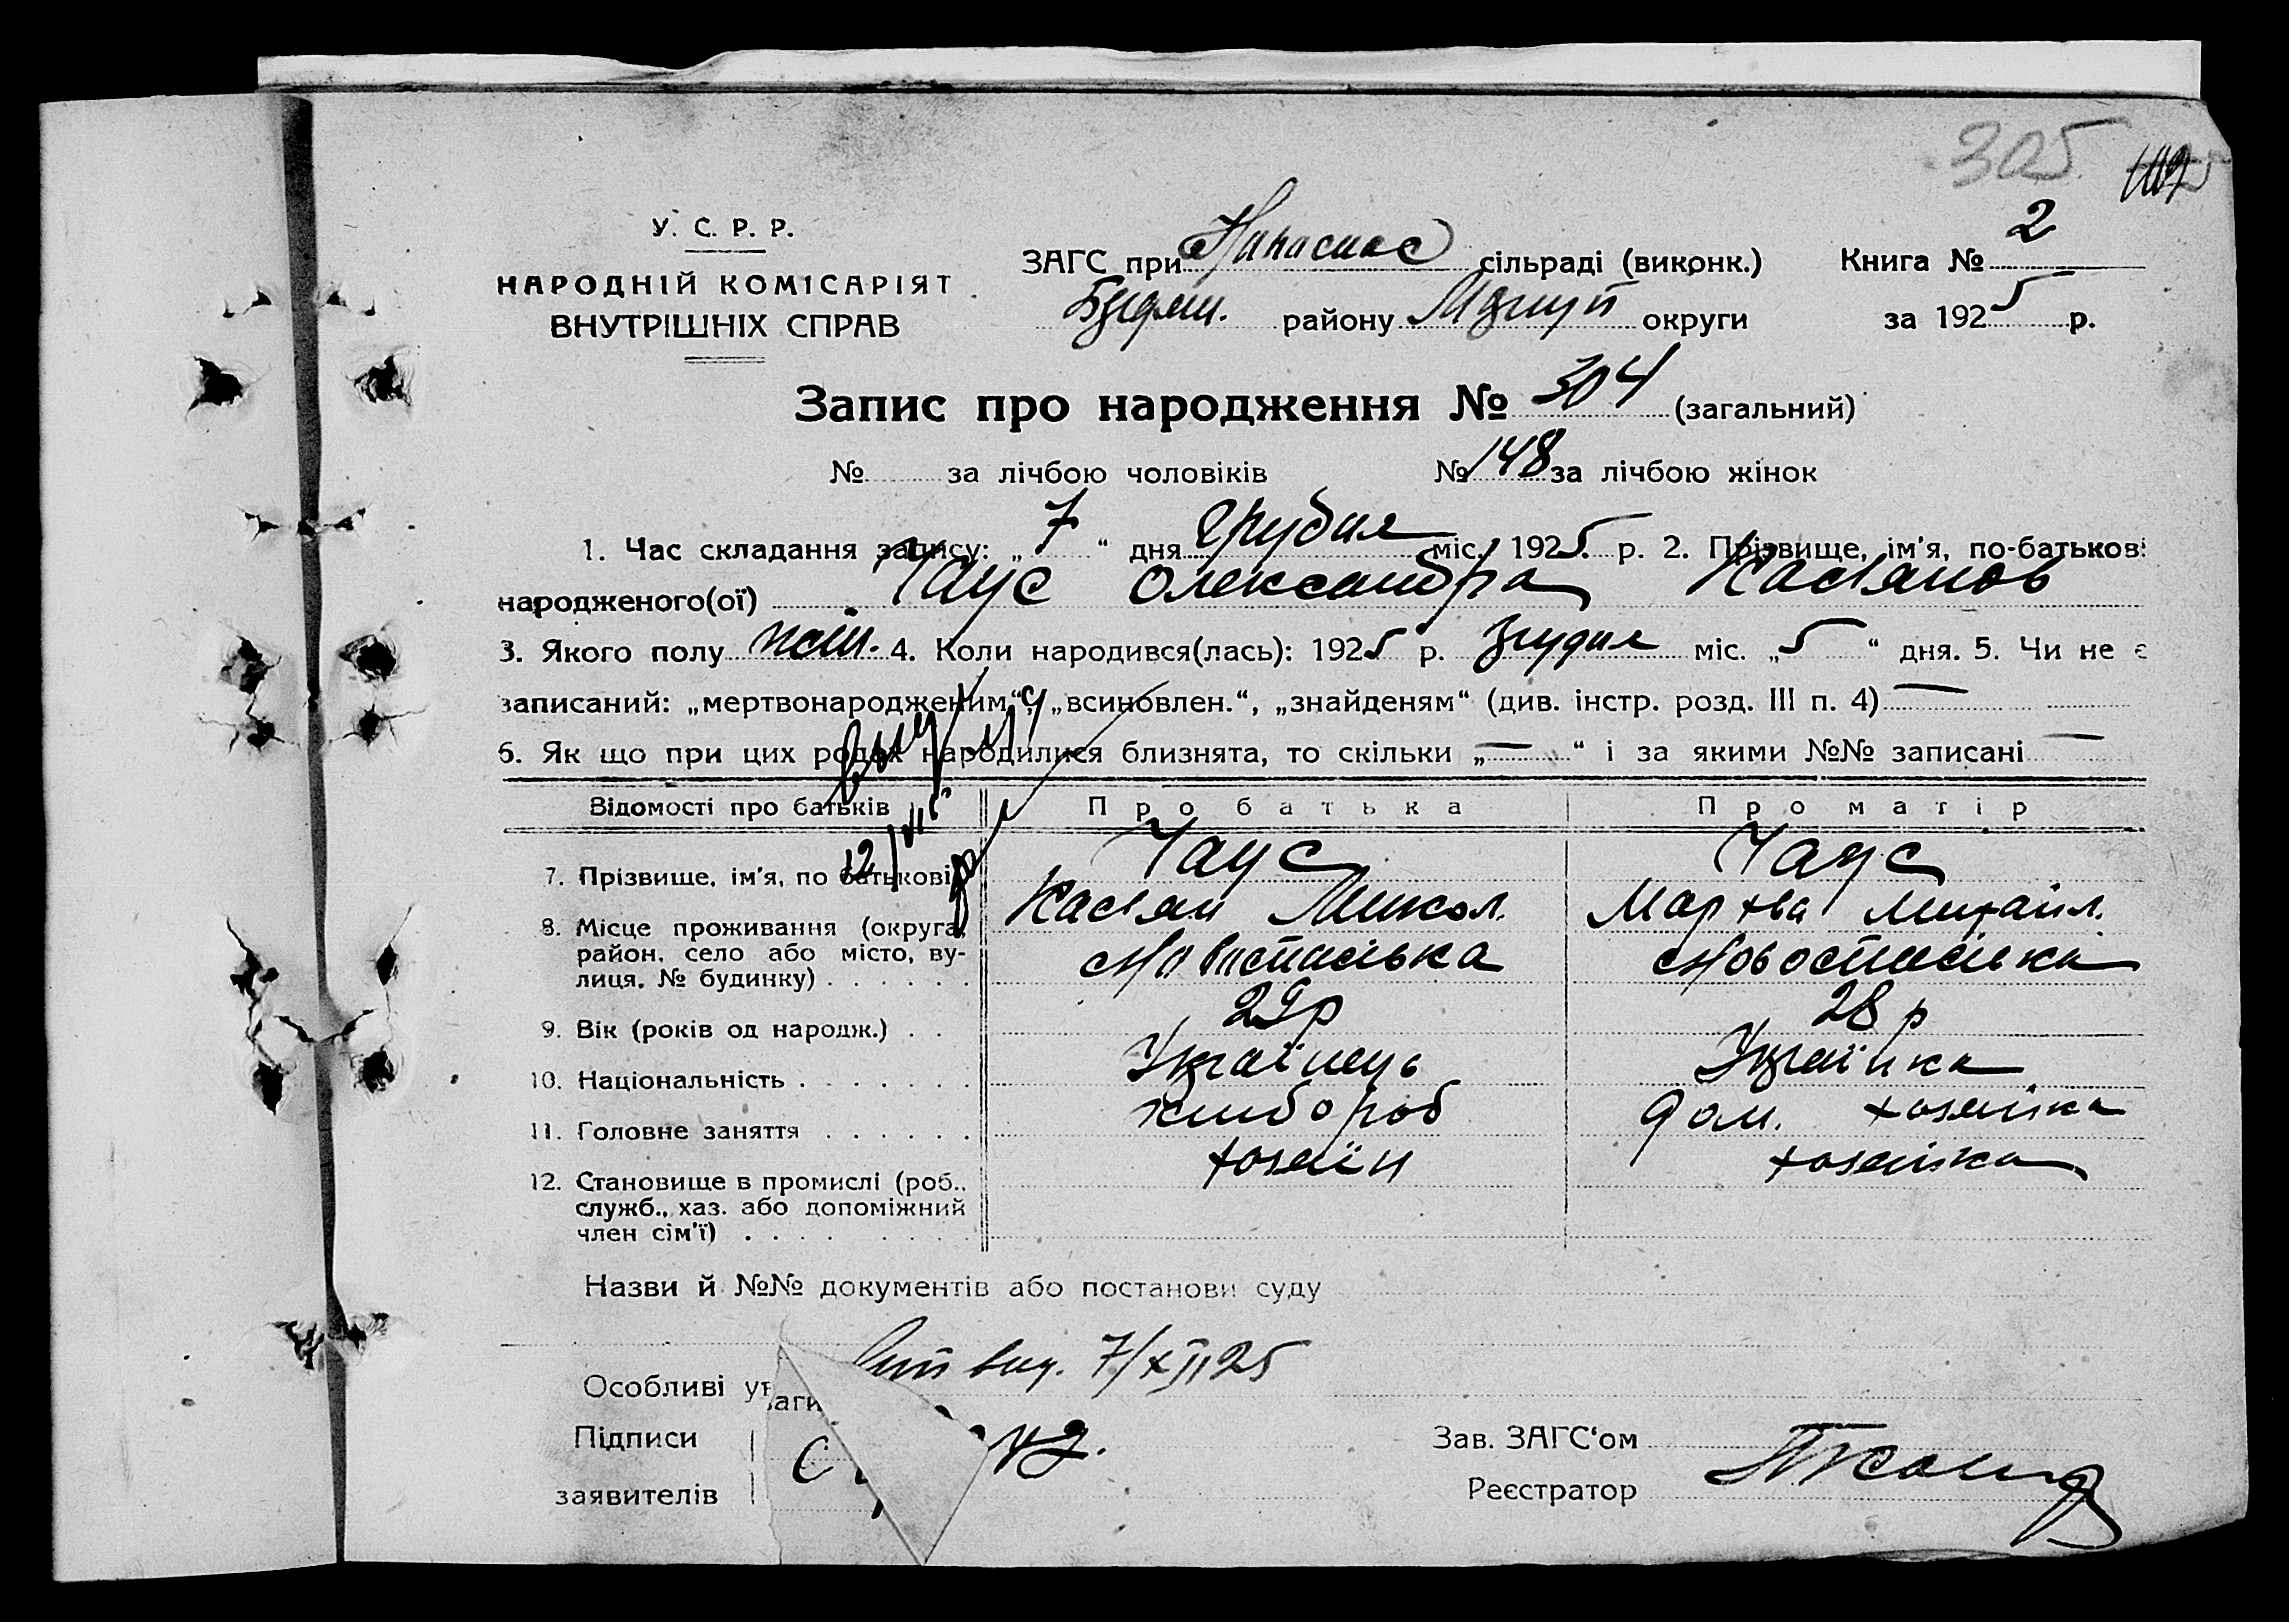 305
У. С. Р. Р.
НАРОДНІЙ КОМІСАРІЯТ
ВНУТРІШНІХ СПРАВ
ЗАГС при сільраді (виконк.) Книга № 2
району округи за 1925 р.
Запис про народження № 304 (загальний)
№ за лічбою чоловіків № 148 за лічбою жінок
1. Час складання запису: „7“ дня грудня міс. 1925 р. 2. Прізвище, ім'я, по-батькові
народженого(ої) Чаус Олександра Касьянов
3. Якого полу жін. 4. Коли народився(лась): 1925 р. грудня міс. „5“ дня. 5. Чи не є
записаний: „мертвонародженим“, „всиновлен.“, „знайденям“ (див. інстр. розд. III п. 4) —
6. Як що при цих родах народилися близнята, то скільки „—“ і за якими №№ записані —
Відомості про батьків Про батька Про матір
7. Прізвище, ім'я, по батькові Чаус Чаус
Касьян Микол. Марфа Михайл.
8. Місце проживання (округа, район, село або місто, вулиця, № будинку) Новоспасівка Новоспасівка
9. Вік (років од народж.) 29 р 28 р
10. Національність Українець Українка
11. Головне заняття хлібороб дом. хозяйка
12. Становище в промислі (роб., служб., хаз. або допоміжний член сім'ї) хозяїн хозяйка
Назви й №№ документів або постанови суду
Особливі уваги вид. 7/XII 25
Підписи
заявителів
Зав. ЗАГС'ом
Реєстратор